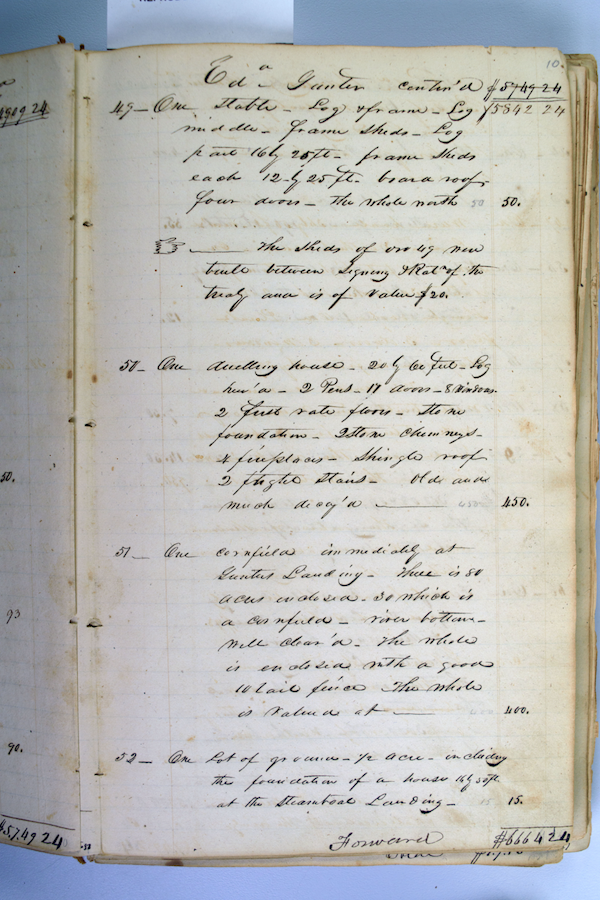 10.
Ed^a Gunter contin'd $5749 24
49 — One Stable — Log & frame — Log 5842 24
middle — frame Sheds — Log
part 16 by 25 ft — frame Sheds
each 12 by 25 ft. board roof
four doors — the whole worth 50 50.
The Sheds of 49 were
built between Signing & Rat^n of the
treaty and is of value $20.
50 — One dwelling house — 20 by 60 feet — Log
hew'd — 2 Pens — 17 doors — 8 Windows
2 first rate floors — Stone
foundation — 2 Stone Chimneys —
4 fireplaces — Shingle roof
2 flight Stairs — Old and
much decay'd — 450 450.
51 — One cornfield immediately at
Gunters Landing — There is 80
acres enclosed — 30 which is
a cornfield — river bottom —
well clear'd — The whole
is enclosed with a good
10 rail fence The whole
is valued at — 400.
52 — One Lot of ground — ½ acre — including
the foundation of a house 16 by 30 ft
at the Steamboat Landing — 15 15.
Forward $6664 24
4909 24
50.
93
90.
$5749 24